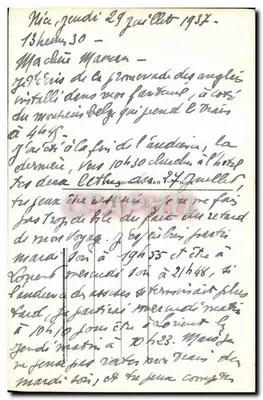 Nice, jeudi 29 juillet 1937.
13 heures 30 -
Ma chère Maman -
Je t'écris de la promenade des anglais
installé dans mon fauteuil, à côté
du monsieur belge qui prend le train
à 4h45.
J'ai été à la fin de l'audience, la
dernière, vers 10h30 chercher à l'hôtel
tes deux lettres 27 juillet,
tu peux être ne me fais
pas trop de bile du retard
de mon voyage. Je
mardi soir à 19h55 et être à
Lorient mercredi soir à 21h48, si
l'audience des assises se terminait plus
tard, je partirai mercredi matin
à 10h10 pour être à Lorient le
jeudi matin à 10h23. Mais je
ne peux pas rater mon train du
mardi soir, et tu peux compter